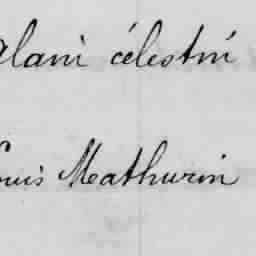 Alani célestin
Louis Mathurin